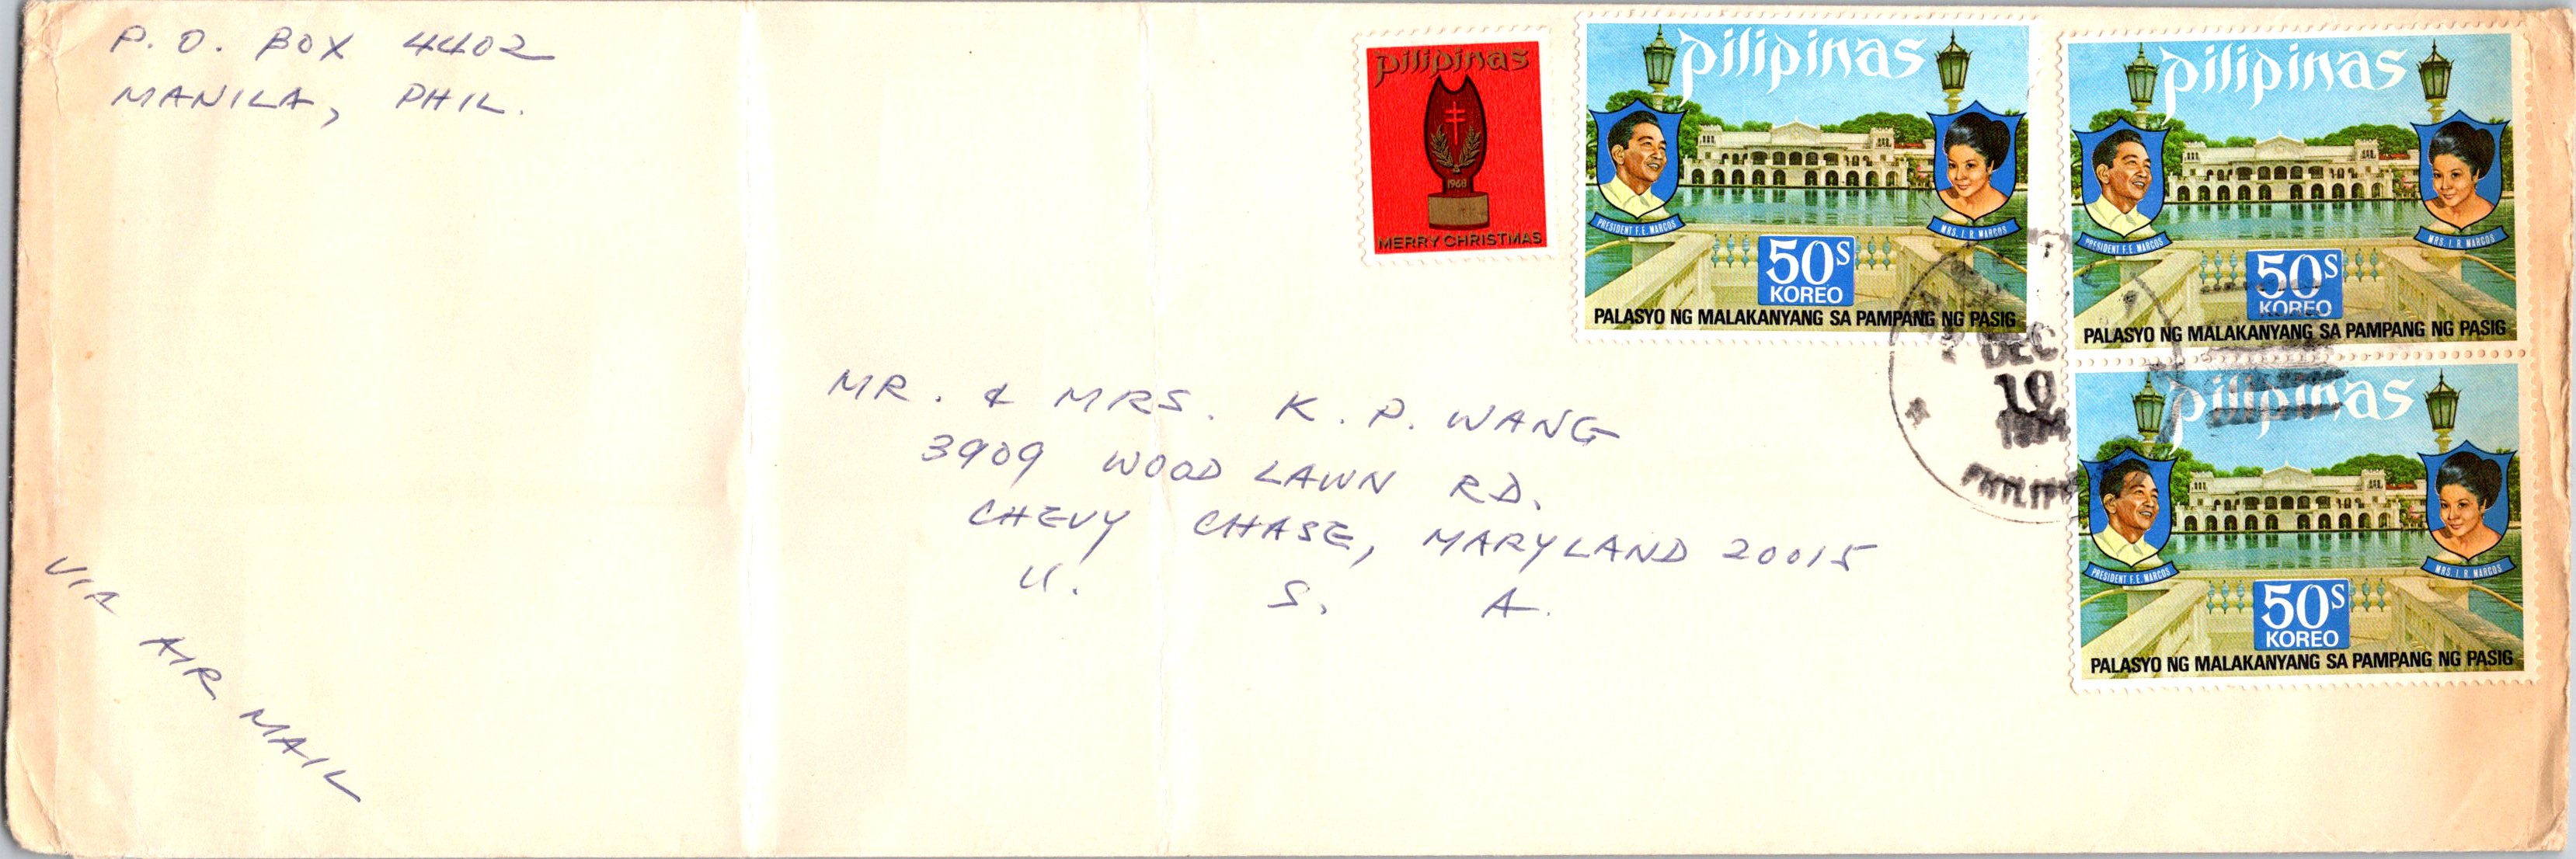 P. O. BOX 4402
MANILA, PHIL.
pilipinas
1968
MERRY CHRISTMAS
pilipinas
PRESIDENT F.E. MARCOS
MRS. I. R. MARCOS
50s
KOREO
PALASYO NG MALAKANYANG SA PAMPANG NG PASIG
pilipinas
PRESIDENT F.E. MARCOS
MRS. I. R. MARCOS
50s
KOREO
PALASYO NG MALAKANYANG SA PAMPANG NG PASIG
pilipinas
PRESIDENT F.E. MARCOS
MRS. I. R. MARCOS
50s
KOREO
PALASYO NG MALAKANYANG SA PAMPANG NG PASIG
DEC
10
MR. & MRS. K. P. WANG
3909 WOOD LAWN RD.
CHEVY CHASE, MARYLAND 20015
U. S. A.
VIA AIR MAIL